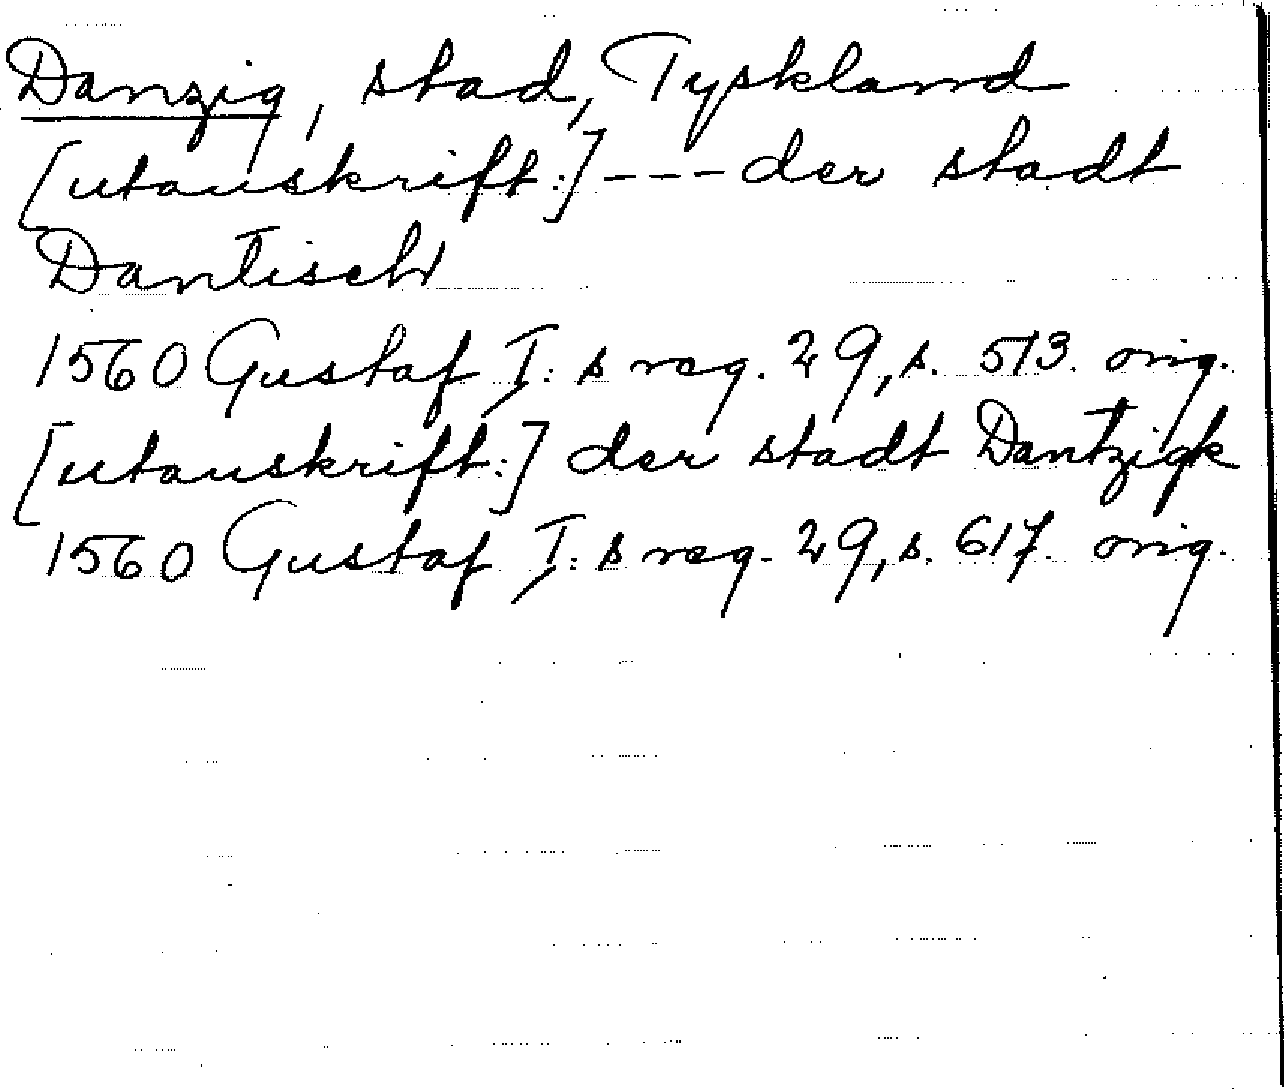 Danzig, stad, Tyskland
[utanskrift:] --- der stadt
Dantisch
1560 Gustaf I:s reg. 29, s. 513. orig.
[utanskrift:] der stadt Dantzigk
1560 Gustaf I:s reg. 29, s. 617. orig.